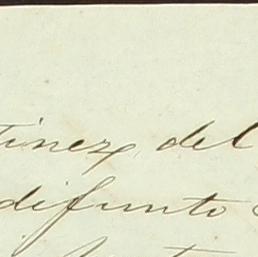 tinez, del
difunto